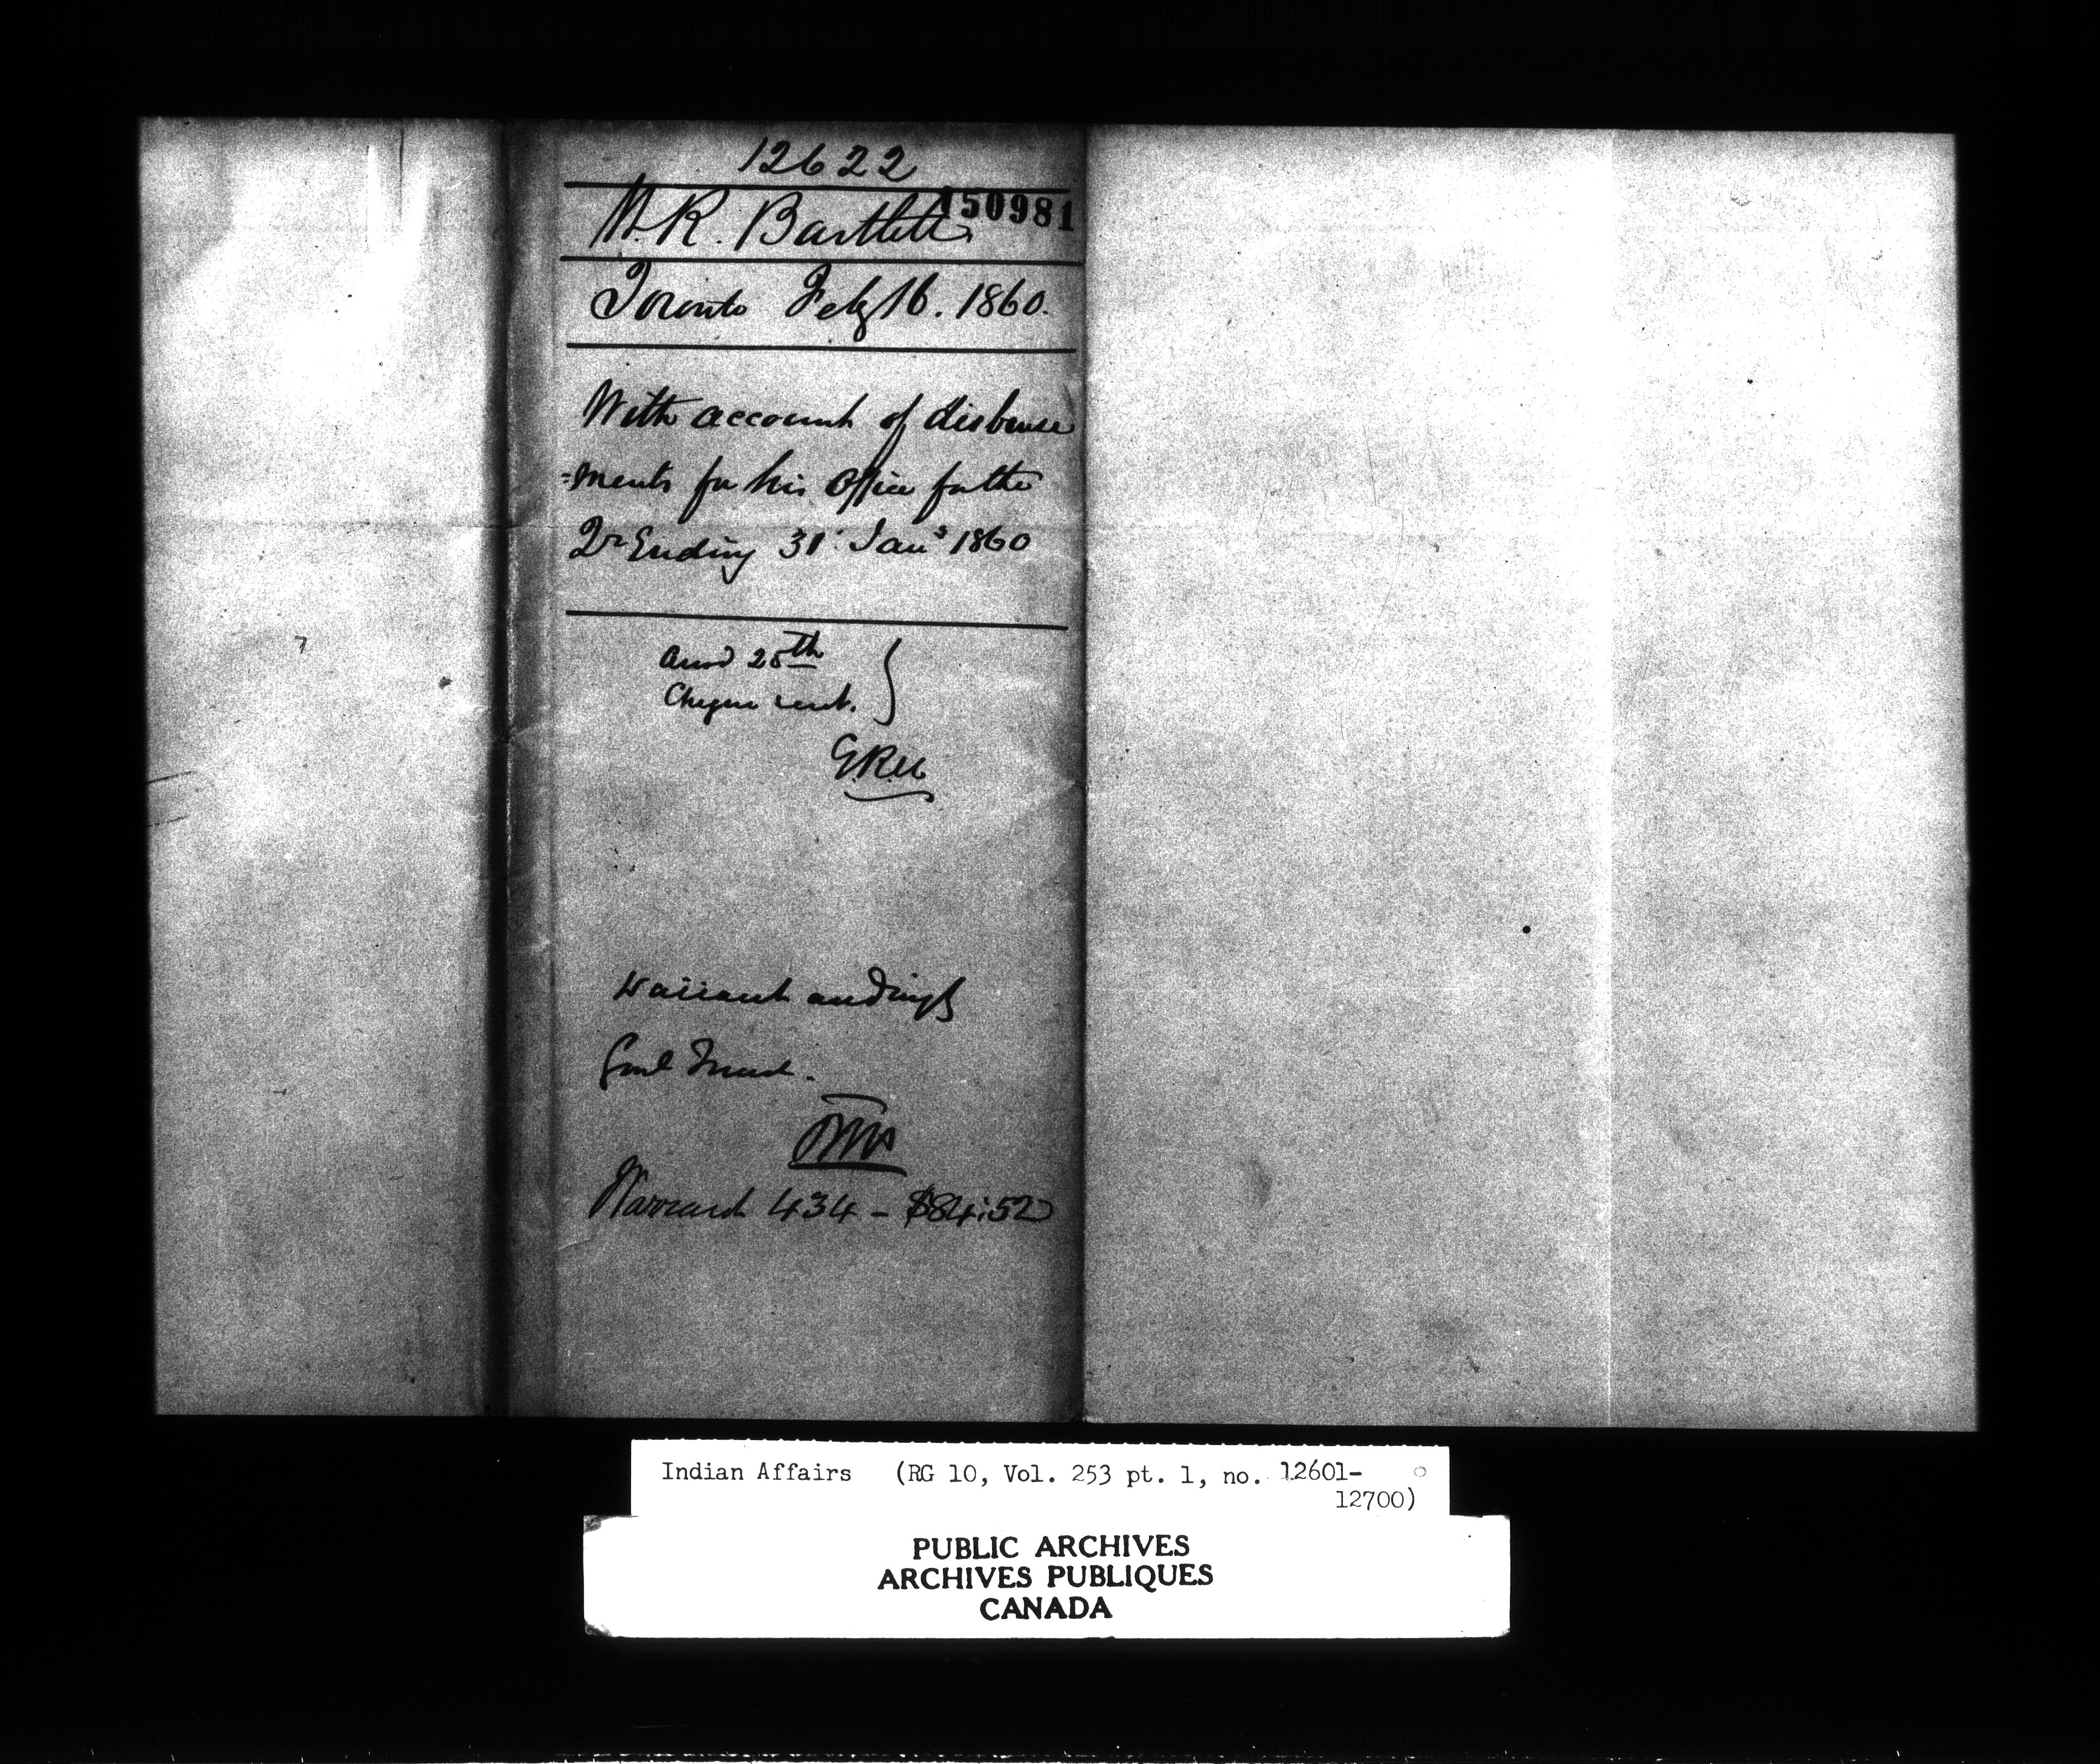 12622
150981
W.R. Bartlett
Toronto Feby 16. 1860.
With account of disburse
=ments for his Office for the
Qr Ending 31st Jany 1860
Ansd 25th
Cheque sent.
Warrant
Warrant 434 - $84:52
Indian Affairs (RG 10, Vol. 253 pt. 1, no. 12601-
12700)
PUBLIC ARCHIVES
ARCHIVES PUBLIQUES
CANADA